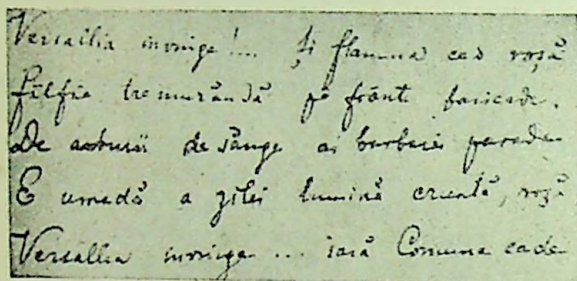 Versallia învinge!... Și flamura cea roșă
Fîlfîe tremurândă pe frônti baricade.
De aburii de sânge ai barbarei parade
E umedă a zilei lumină cruntă, roșă
Versallia învinge... iară Comuna cade